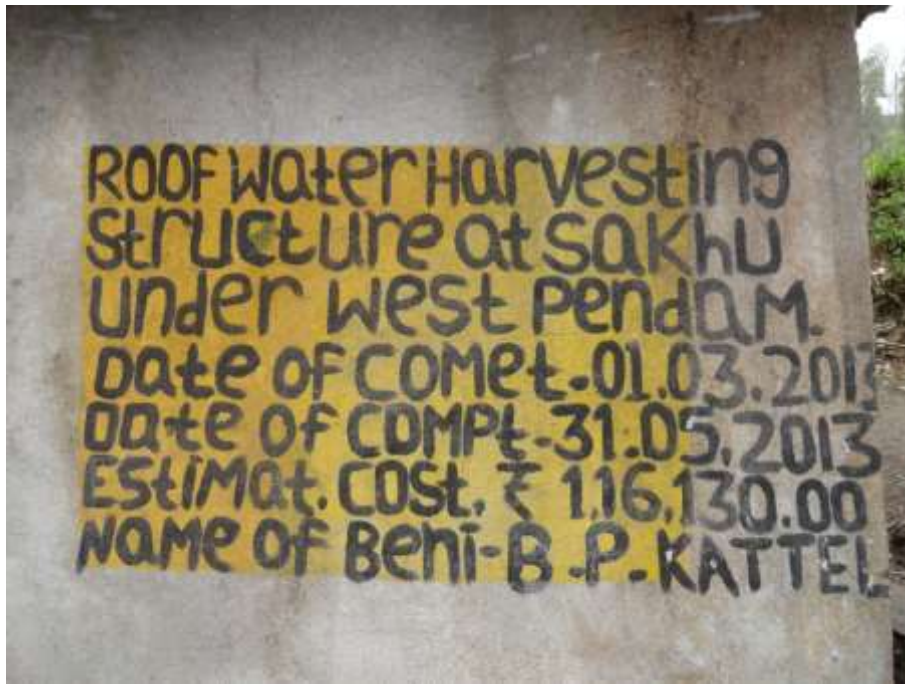 ROOF Water Harvesting
Structure at SAKhU
Under West Pendam.
Date of COMet.-01.03.2013
Date of COMPt-31.05.2013
EStiMat. COSt. ₹ 1,16,130.00
NaMe of Beni-B.P.KATTEL